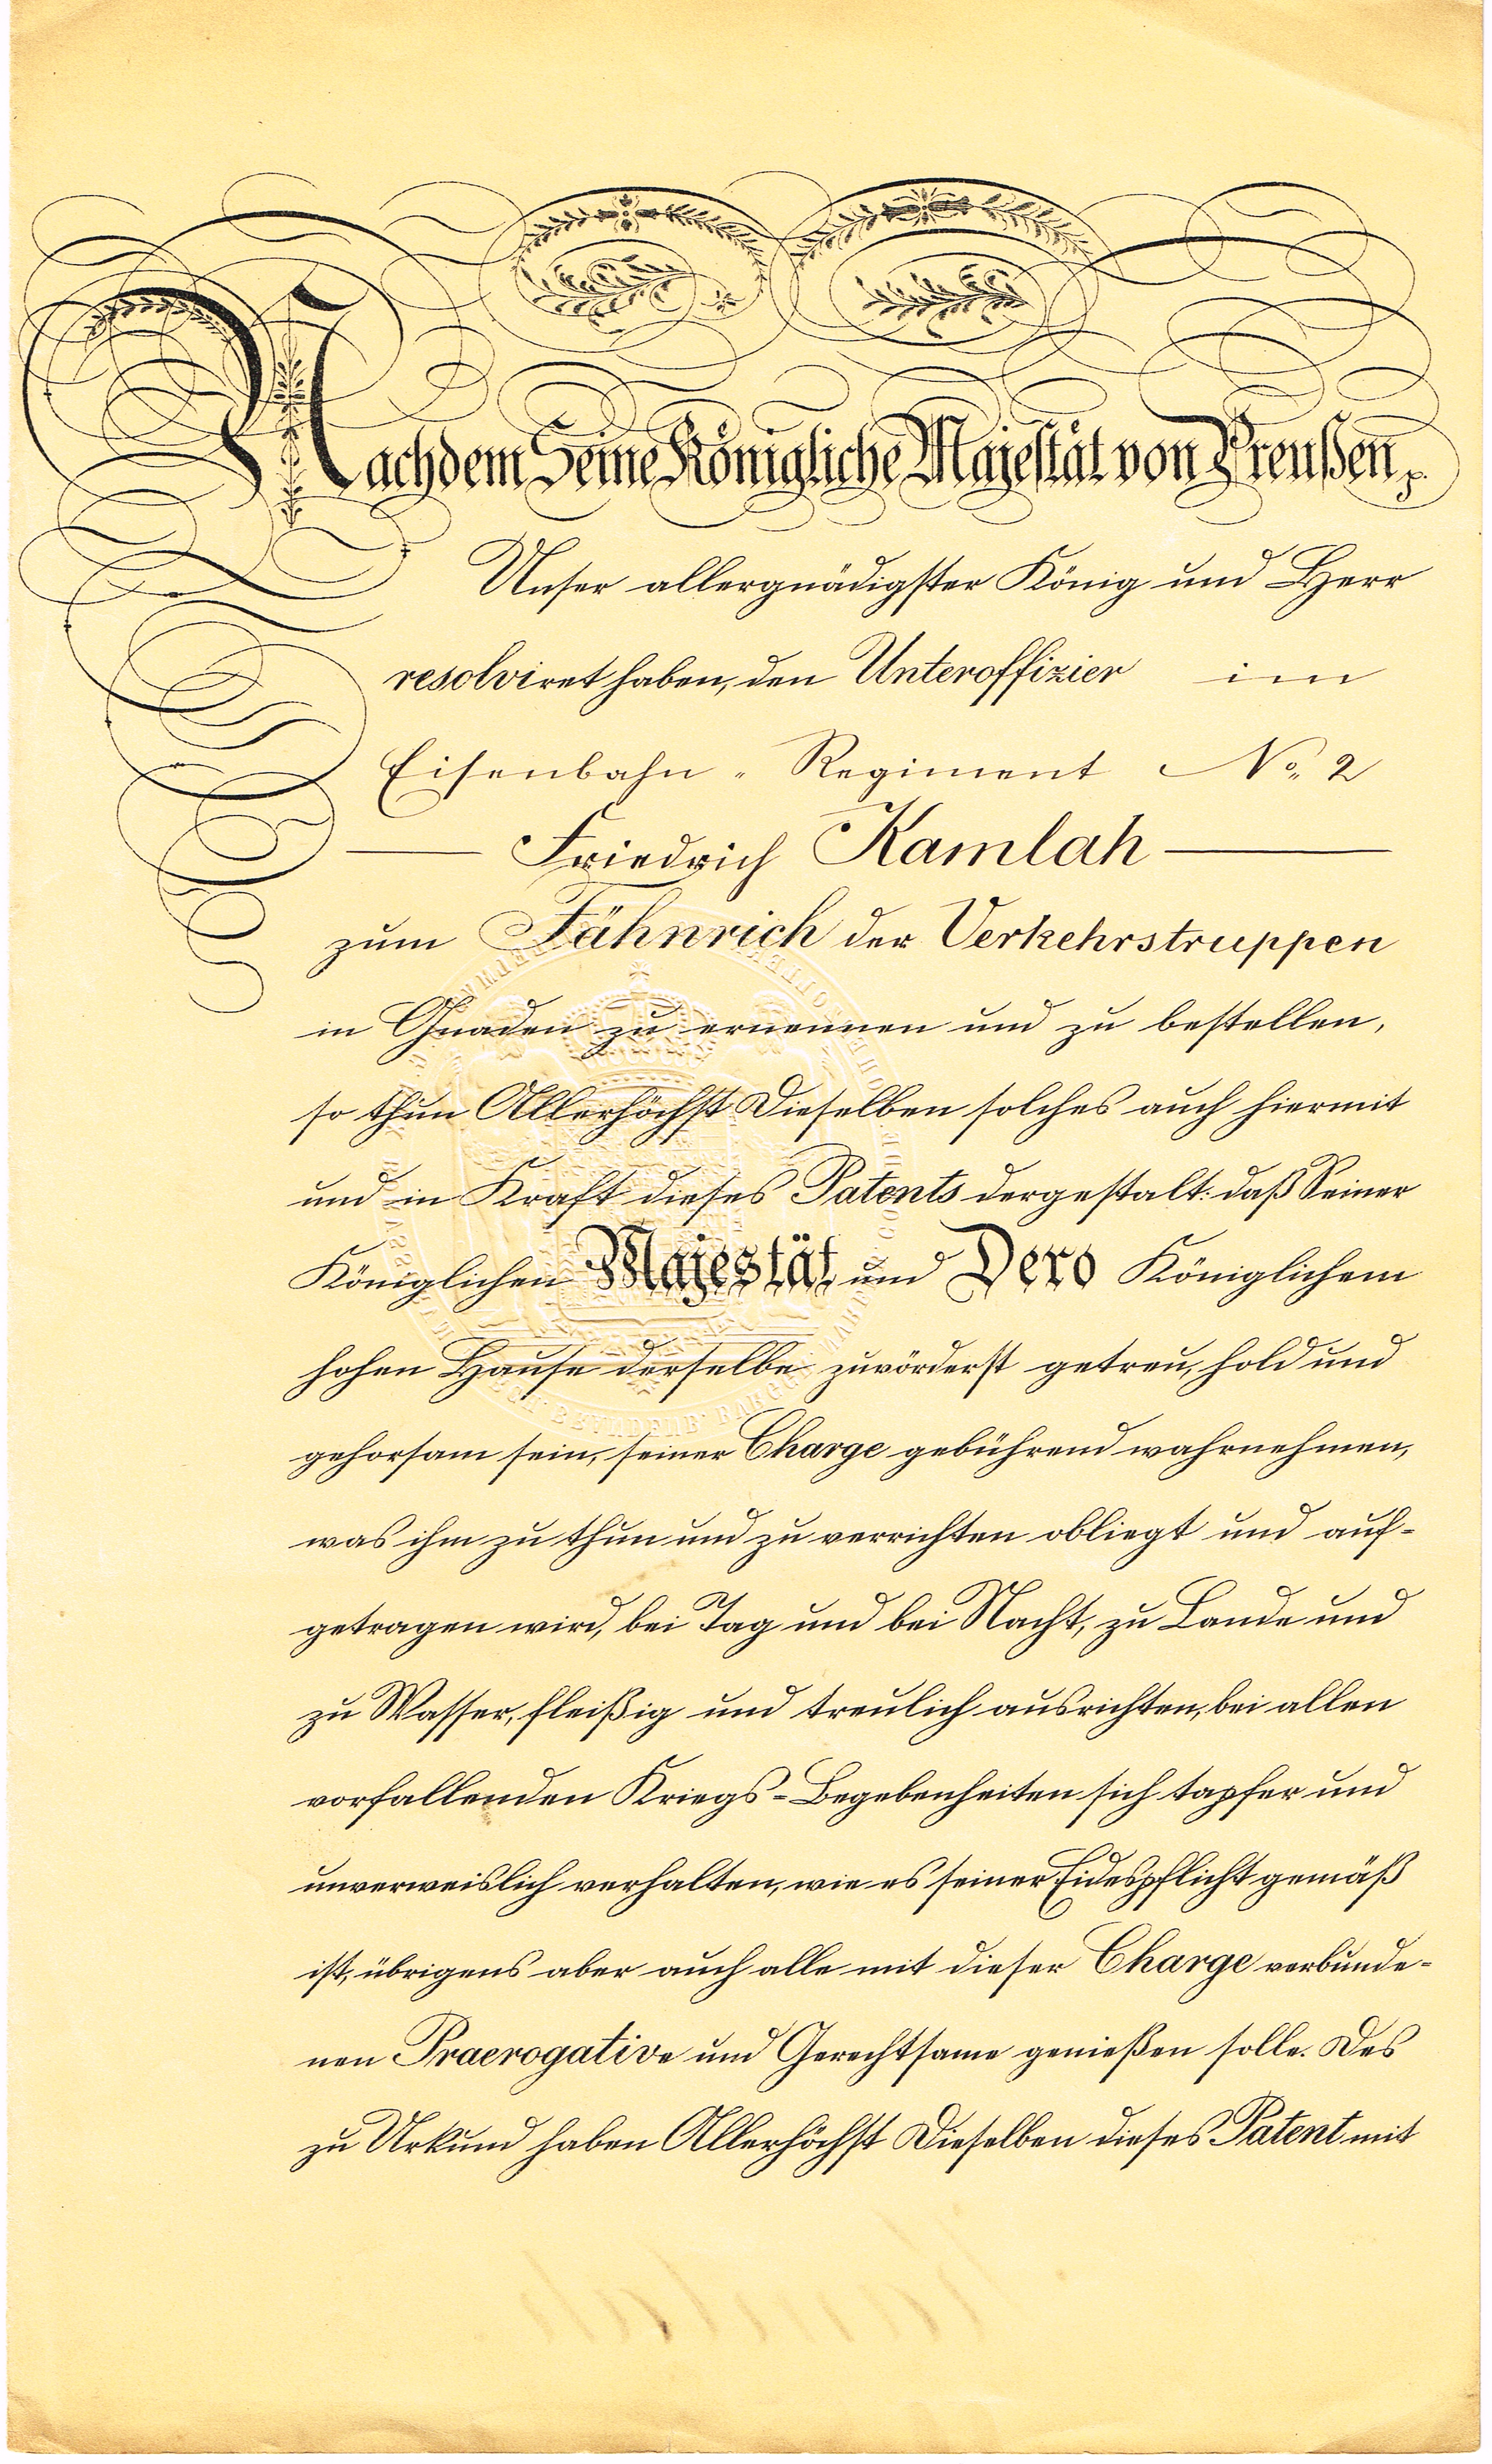 Nachdem Seine Königliche Majestät von Preußen p.
Unser allergnädigster König und Herr
resolviret haben, den Unteroffizier im
Eisenbahn-Regiment No. 2
Friedrich Kamlah
zum Fähnrich der Verkehrstruppen
in Gnaden zu ernennen und zu bestellen,
so thun Allerhöchst Dieselben solches auch hiermit
und in Kraft dieses Patents dergestalt: daß Seiner
Königlichen Majestät und Dero Königlichem
hohen Hause derselbe zuvörderst getreu, hold und
gehorsam sein, seiner Charge gebührend wahrnehmen,
was ihm zu thun und zu verrichten obliegt und auf-
getragen wird, bei Tag und bei Nacht, zu Lande und
zu Wasser, fleißig und treulich ausrichten, bei allen
vorfallenden Kriegs-Begebenheiten sich tapfer und
unverweislich verhalten, wie es seiner Eidespflicht gemäß
ist, übrigens aber auch alle mit dieser Charge verbunde-
nen Praerogative und Gerechtsame genießen solle. Des
zu Urkund haben Allerhöchst Dieselben dieses Patent mit